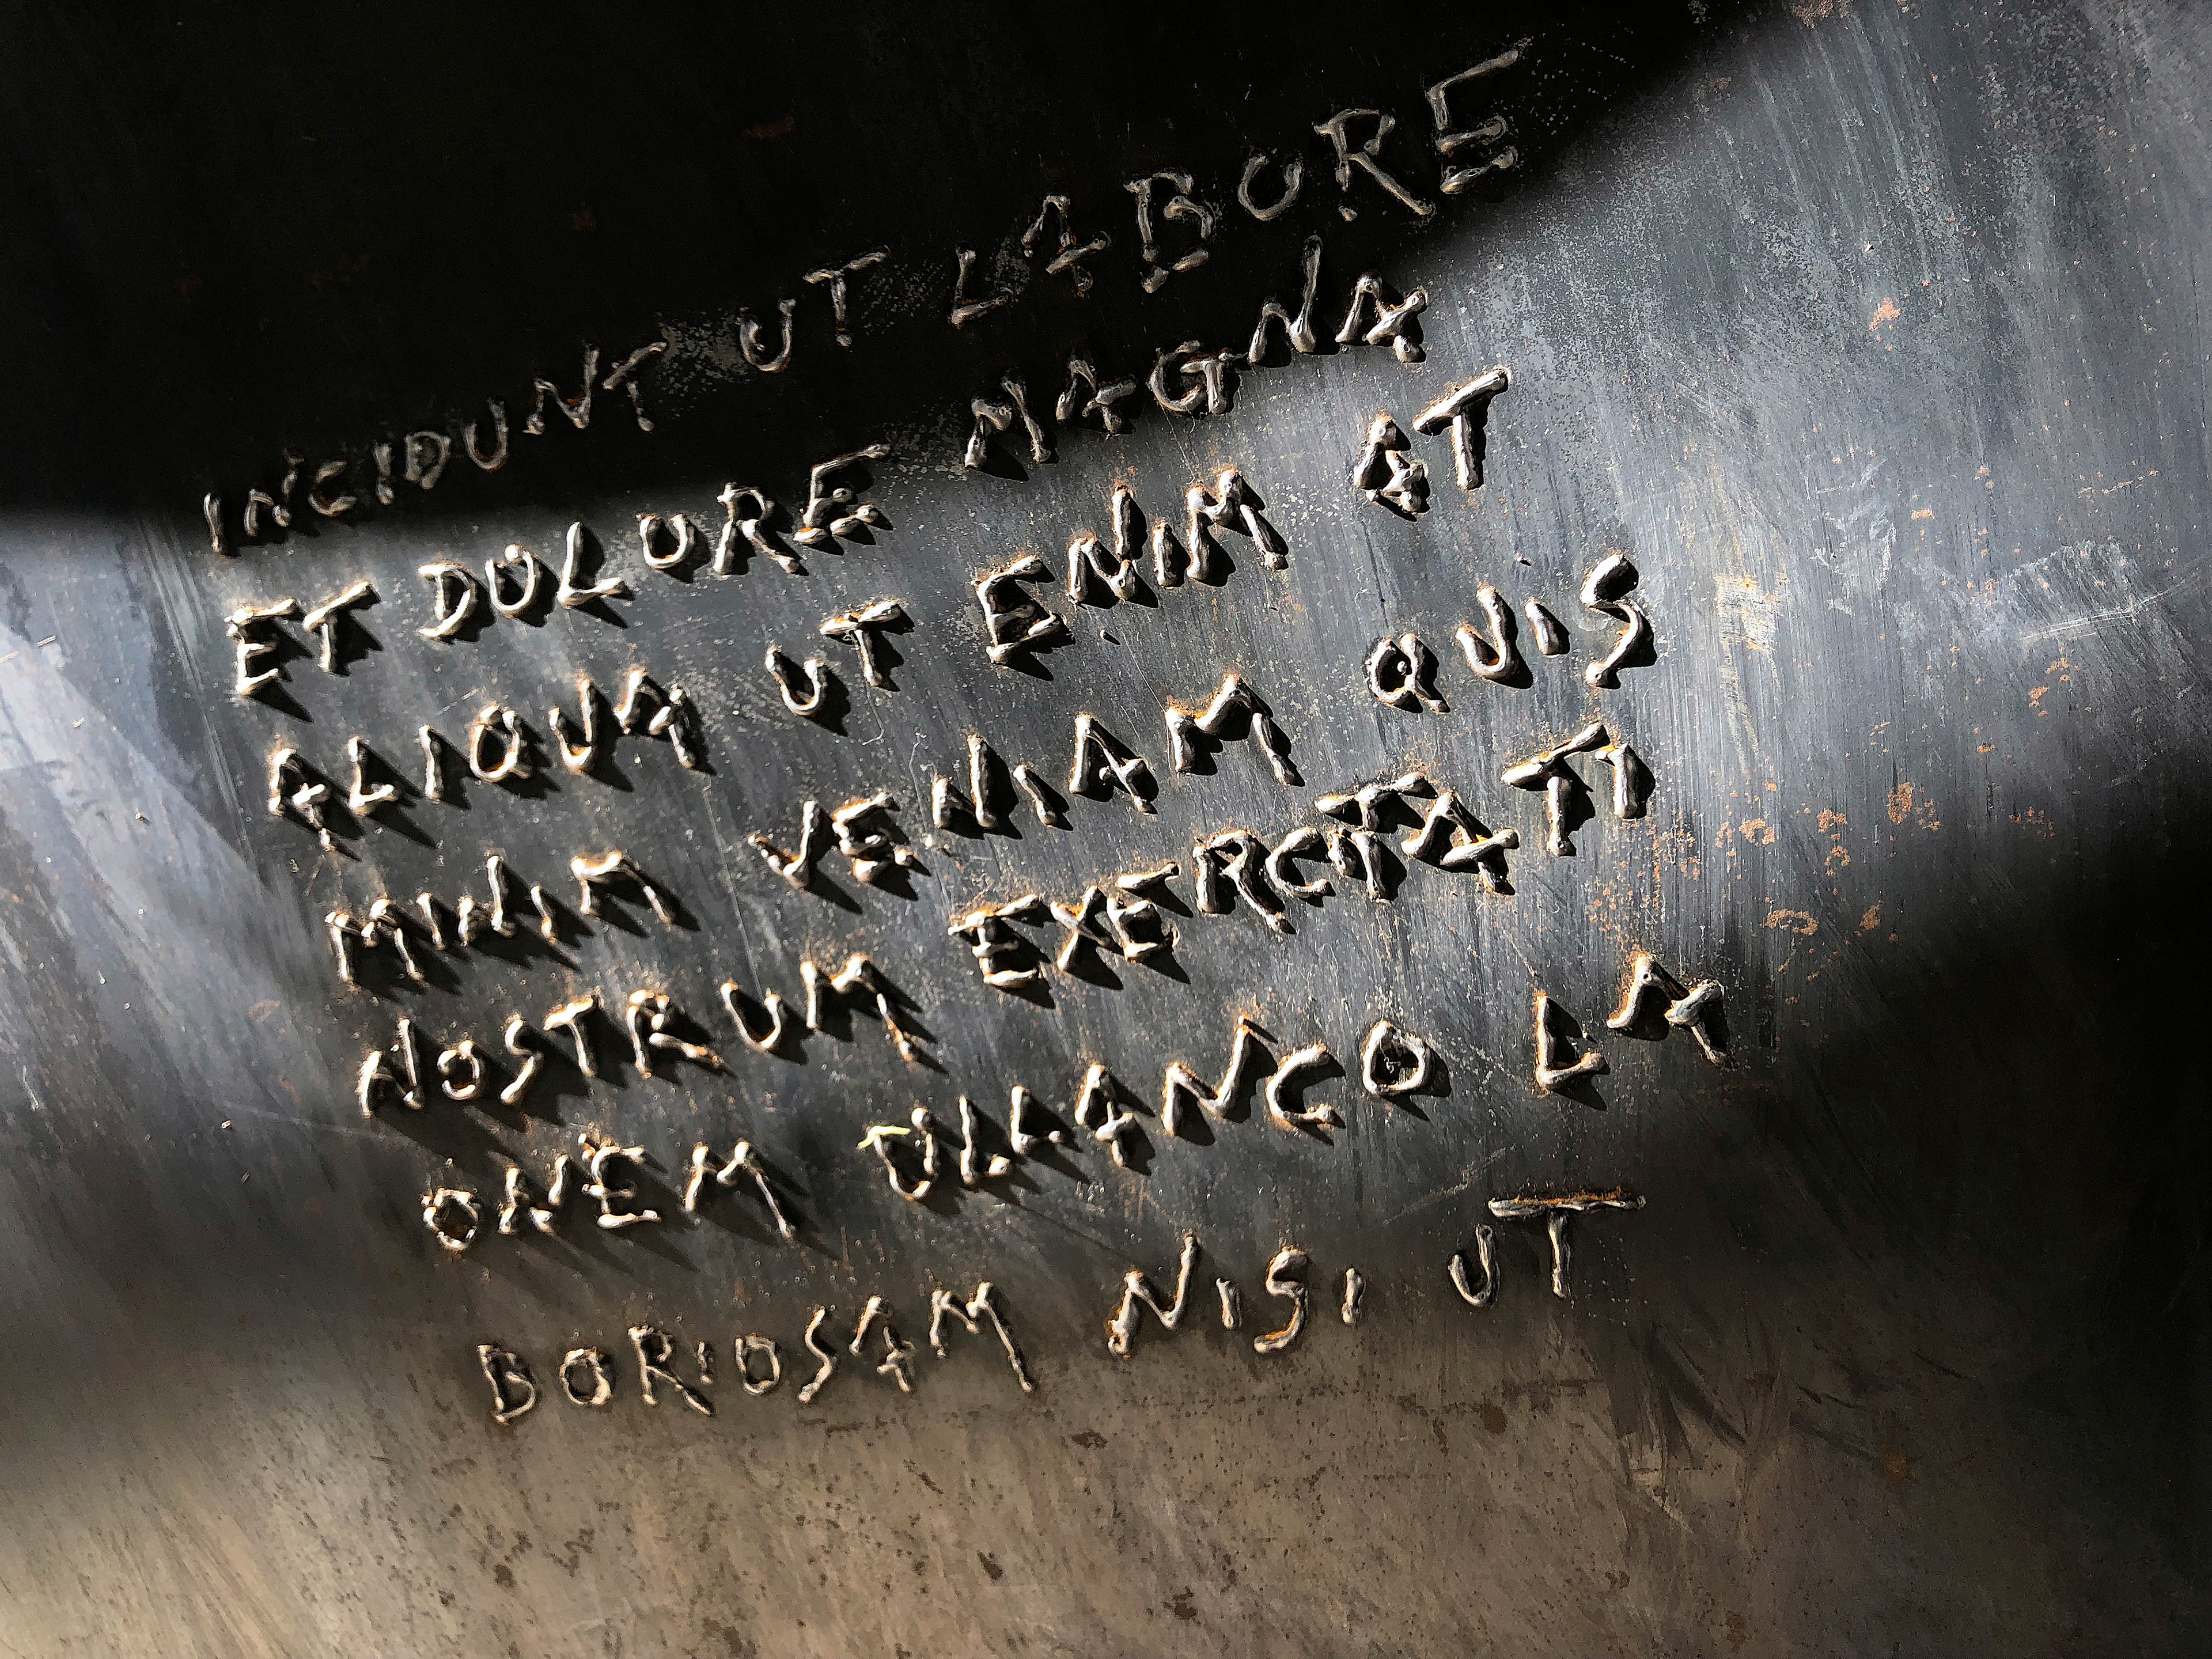 INCIDUNT UT LABORE
ET DOLORE MAGNA
ALIQUA UT ENIM AT
MINIM VENIAM QUIS
NOSTRUM EXERCITATI
ONEM ULLANCO LA
BORIOSAM NISI UT